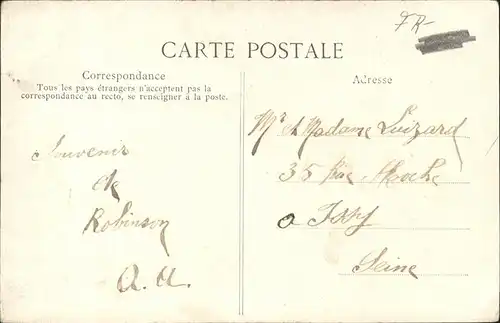 FR-
CARTE POSTALE
Correspondance
Tous les pays étrangers n'acceptent pas la
correspondance au recto, se renseigner à la poste.
Adresse
Souvenir
de
Robinson
A.A.
Mr et Madame Luizard
35 Rue Hoche
a Issy
Seine